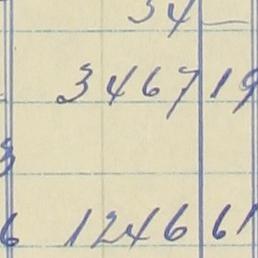 34 —
3467 19
3
6 1246 61